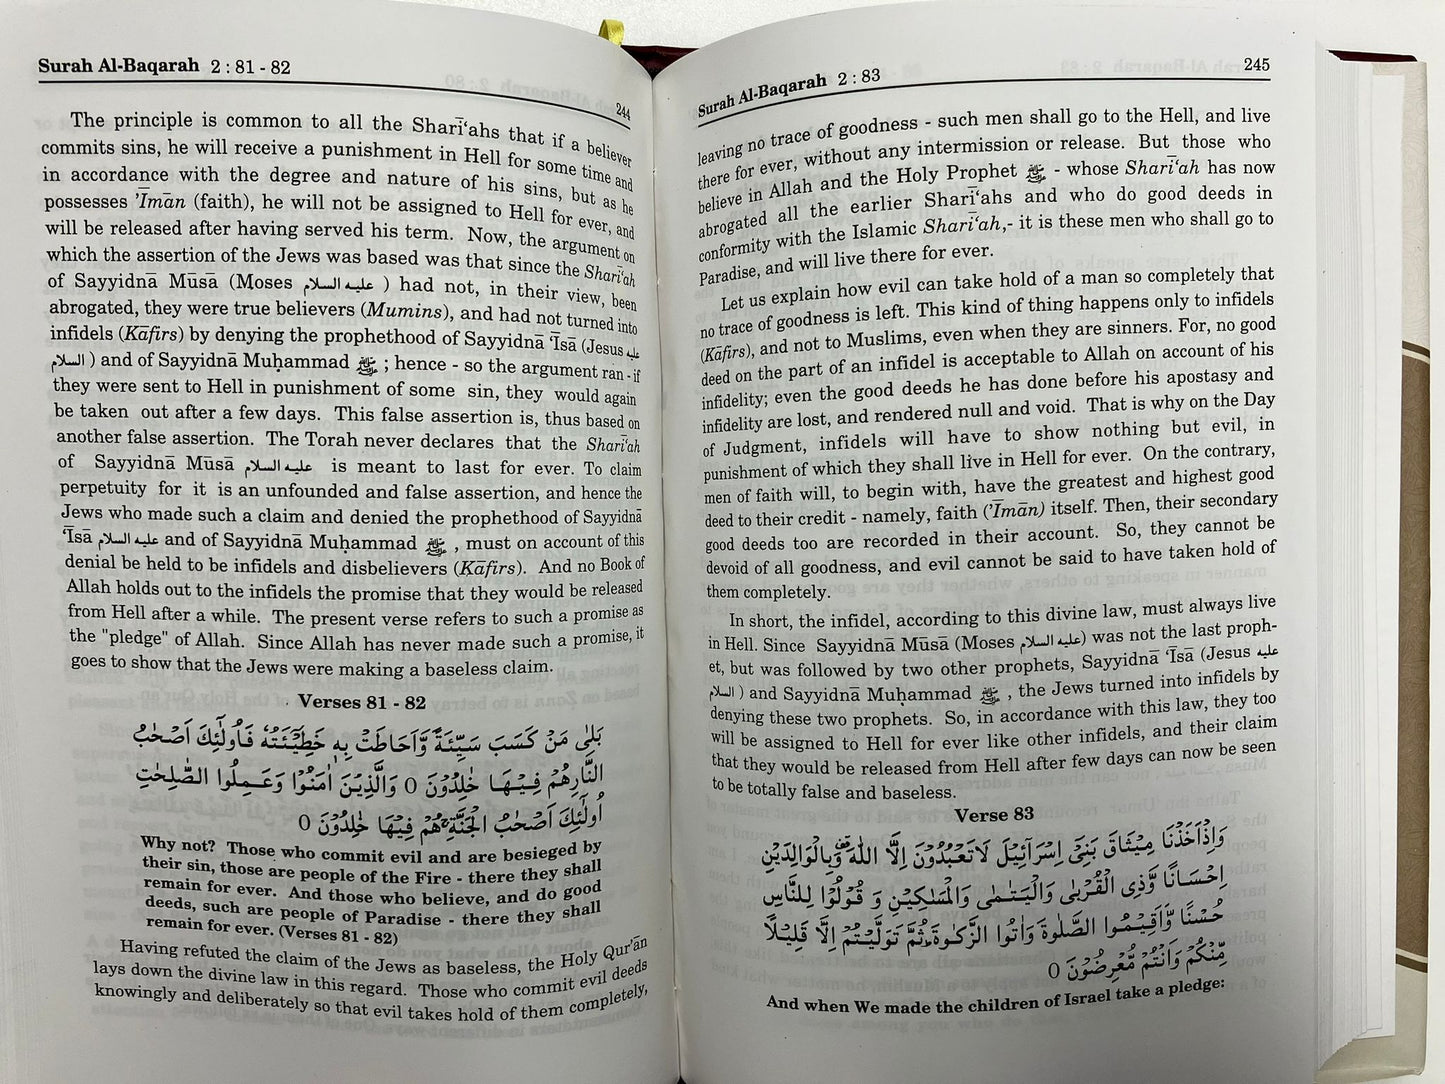 Surah Al-Baqarah 2 : 81 - 82
244
The principle is common to all the Sharī‘ahs that if a believer
commits sins, he will receive a punishment in Hell for some time and
in accordance with the degree and nature of his sins, but as he
possesses ’Īmān (faith), he will not be assigned to Hell for ever, and
will be released after having served his term. Now, the argument on
which the assertion of the Jews was based was that since the Sharī‘ah
of Sayyidnā Mūsā (Moses عليه السلام ) had not, in their view, been
abrogated, they were true believers (Mumins), and had not turned into
infidels (Kāfirs) by denying the prophethood of Sayyidnā ‘Īsā (Jesus عليه
السلام ) and of Sayyidnā Muḥammad ﷺ ; hence - so the argument ran - if
they were sent to Hell in punishment of some sin, they would again
be taken out after a few days. This false assertion is, thus based on
another false assertion. The Torah never declares that the Sharī‘ah
of Sayyidnā Mūsā عليه السلام is meant to last for ever. To claim
perpetuity for it is an unfounded and false assertion, and hence the
Jews who made such a claim and denied the prophethood of Sayyidnā
‘Īsā عليه السلام and of Sayyidnā Muḥammad ﷺ , must on account of this
denial be held to be infidels and disbelievers (Kāfirs). And no Book of
Allah holds out to the infidels the promise that they would be released
from Hell after a while. The present verse refers to such a promise as
the "pledge" of Allah. Since Allah has never made such a promise, it
goes to show that the Jews were making a baseless claim.
Verses 81 - 82
بَلٰى مَنْ كَسَبَ سَيِّئَةً وَّاَحَاطَتْ بِهٖ خَطِيْٓئَتُهٗ فَاُولٰٓئِكَ اَصْحٰبُ
النَّارِ هُمْ فِيْهَا خٰلِدُوْنَ ٥ وَالَّذِيْنَ اٰمَنُوْا وَعَمِلُوا الصّٰلِحٰتِ
اُولٰٓئِكَ اَصْحٰبُ الْجَنَّةِ ۚ هُمْ فِيْهَا خٰلِدُوْنَ ٥
Why not? Those who commit evil and are besieged by
their sin, those are people of the Fire - there they shall
remain for ever. And those who believe, and do good
deeds, such are people of Paradise - there they shall
remain for ever. (Verses 81 - 82)
Having refuted the claim of the Jews as baseless, the Holy Qur’ān
lays down the divine law in this regard. Those who commit evil deeds
knowingly and deliberately so that evil takes hold of them completely,
Surah Al-Baqarah 2 : 83
245
leaving no trace of goodness - such men shall go to the Hell, and live
there for ever, without any intermission or release. But those who
believe in Allah and the Holy Prophet ﷺ - whose Sharī‘ah has now
abrogated all the earlier Sharī‘ahs and who do good deeds in
conformity with the Islamic Sharī‘ah,- it is these men who shall go to
Paradise, and will live there for ever.
Let us explain how evil can take hold of a man so completely that
no trace of goodness is left. This kind of thing happens only to infidels
(Kāfirs), and not to Muslims, even when they are sinners. For, no good
deed on the part of an infidel is acceptable to Allah on account of his
infidelity; even the good deeds he has done before his apostasy and
infidelity are lost, and rendered null and void. That is why on the Day
of Judgment, infidels will have to show nothing but evil, in
punishment of which they shall live in Hell for ever. On the contrary,
men of faith will, to begin with, have the greatest and highest good
deed to their credit - namely, faith (’Īmān) itself. Then, their secondary
good deeds too are recorded in their account. So, they cannot be
devoid of all goodness, and evil cannot be said to have taken hold of
them completely.
In short, the infidel, according to this divine law, must always live
in Hell. Since Sayyidnā Mūsā (Moses عليه السلام) was not the last proph-
et, but was followed by two other prophets, Sayyidnā ‘Īsā (Jesus عليه
السلام ) and Sayyidnā Muḥammad ﷺ , the Jews turned into infidels by
denying these two prophets. So, in accordance with this law, they too
will be assigned to Hell for ever like other infidels, and their claim
that they would be released from Hell after few days can now be seen
to be totally false and baseless.
Verse 83
وَاِذْ اَخَذْنَا مِيْثَاقَ بَنِيْٓ اِسْرَآئِيْلَ لَا تَعْبُدُوْنَ اِلَّا اللّٰهَ وَبِالْوَالِدَيْنِ
اِحْسَانًا وَّذِي الْقُرْبٰى وَالْيَتٰمٰى وَالْمَسٰكِيْنِ وَ قُوْلُوْا لِلنَّاسِ
حُسْنًا وَّاَقِيْمُوا الصَّلٰوةَ وَاٰتُوا الزَّكٰوةَ ثُمَّ تَوَلَّيْتُمْ اِلَّا قَلِيْلًا
مِّنْكُمْ وَاَنْتُمْ مُّعْرِضُوْنَ ٥
And when We made the children of Israel take a pledge: